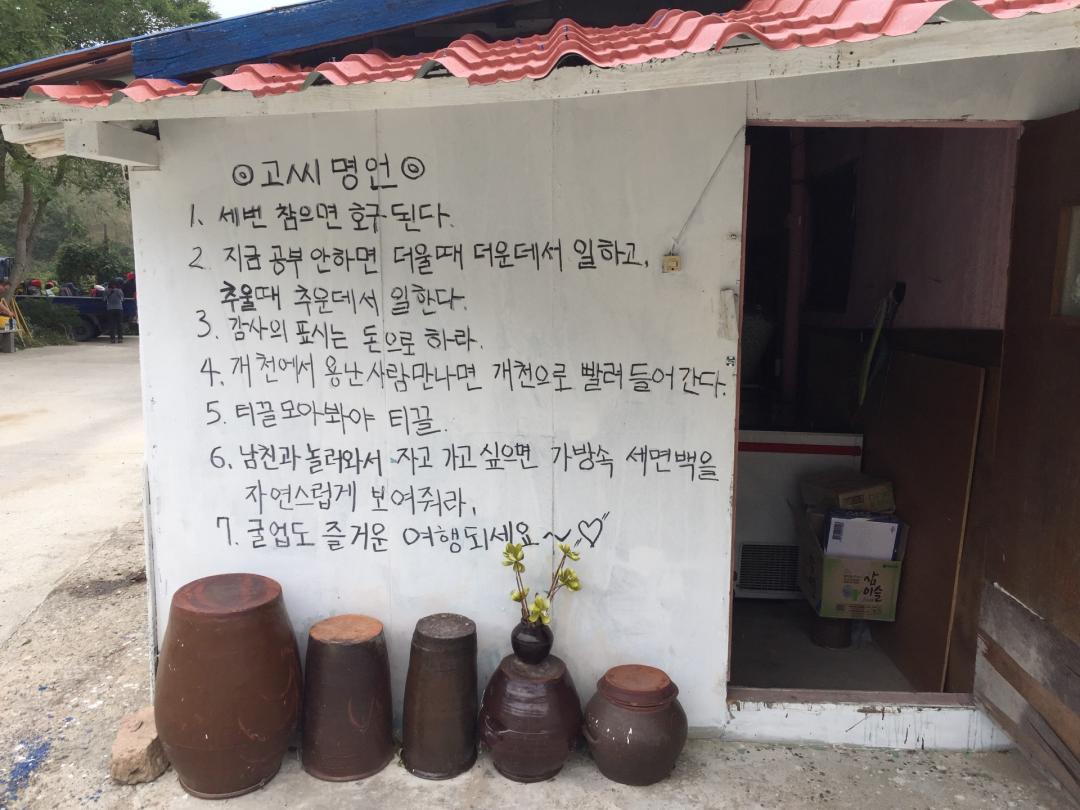 ◎고씨명언◎
1. 세번 참으면 호구된다.
2. 지금 공부 안하면 더울때 더운데서 일하고,
추울때 추운데서 일한다.
3. 감사의 표시는 돈으로 하라.
4. 개천에서 용난사람만나면 개천으로 빨려들어간다.
5. 티끌모아봐야 티끌.
6. 남친과 놀러와서 자고 가고 싶으면 가방속 세면백을
자연스럽게 보여줘라.
7. 굴업도 즐거운 여행되세요~♡
참
이슬